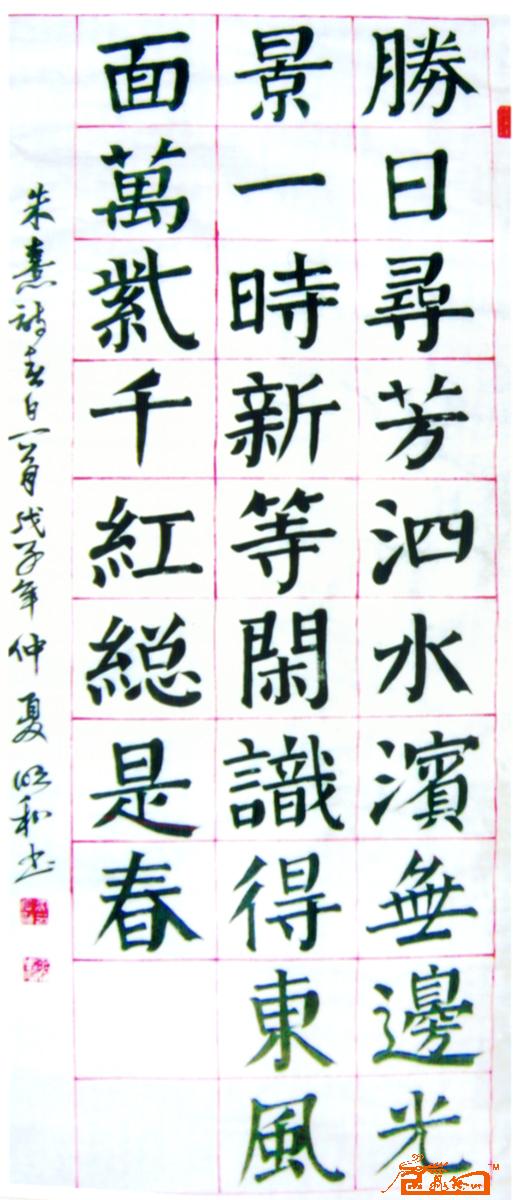 勝日尋芳泗水濱無邊光
景一時新等閑識得東風
面萬紫千紅総是春
朱熹詩春日一首戊子年仲夏明和书